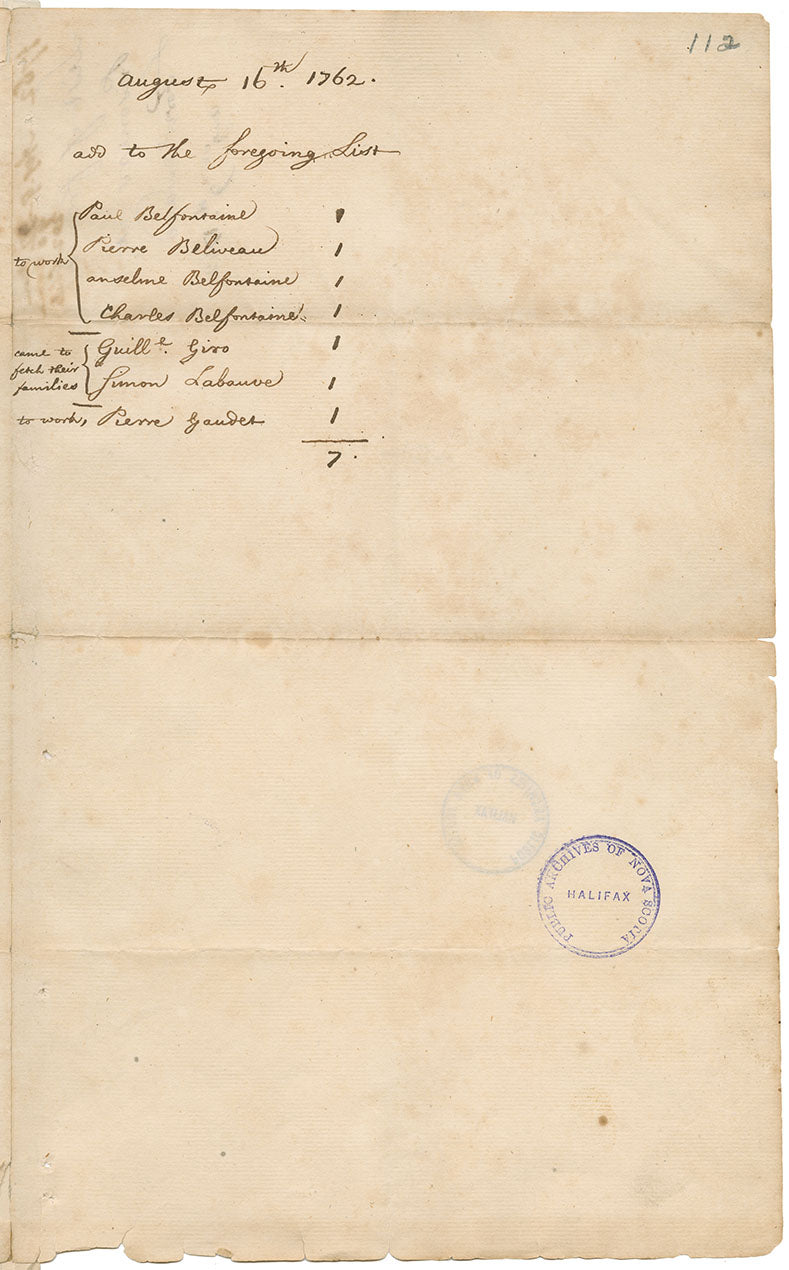 112
August 16th. 1762.
add to the foregoing List
to work
Paul Belfontaine 1
Pierre Beliveau 1
anselme Belfontaine 1
Charles Belfontaine 1
came to
fetch their
families
Guille. Giro 1
Simon Labauve 1
to work, Pierre Gaudet 1
7.
PUBLIC ARCHIVES OF NOVA SCOTIA
HALIFAX